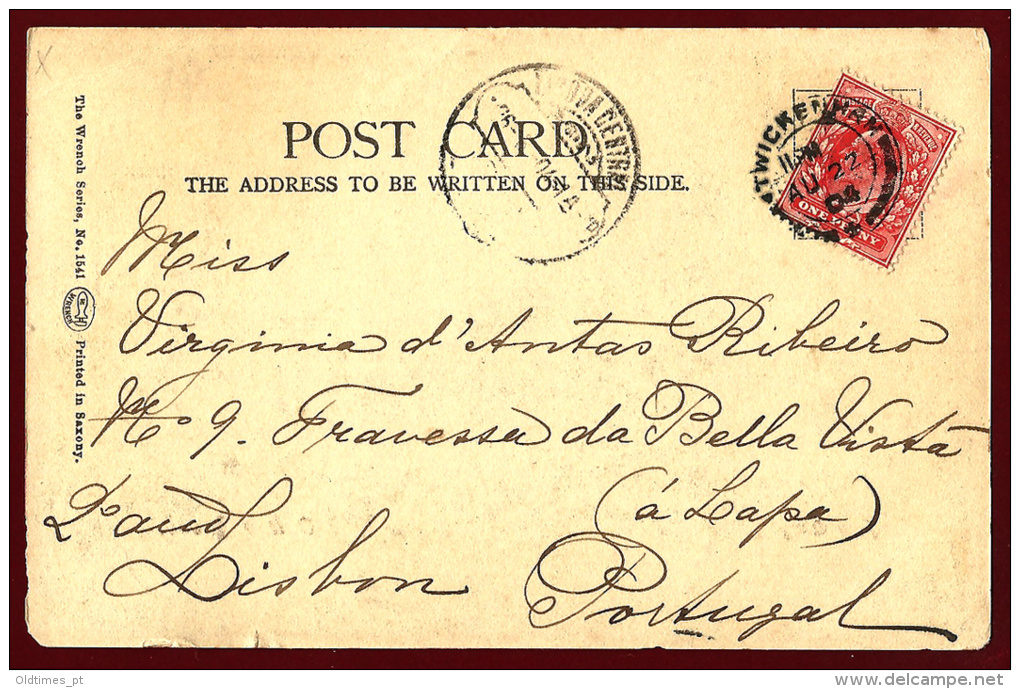 x
POST CARD.
THE ADDRESS TO BE WRITTEN ON THIS SIDE.
The Wrench Series, No. 1541
WRENCH
Printed in Saxony.
TWICKENHAM
AU 22
04
ONE PENNY
CENTRAL
Miss
Virginia d'Antas Ribeiro
No 9. Travessa da Bella Vista
(á Lapa)
Lisbon
Portugal
Oldtimes_pt
delcampe.net